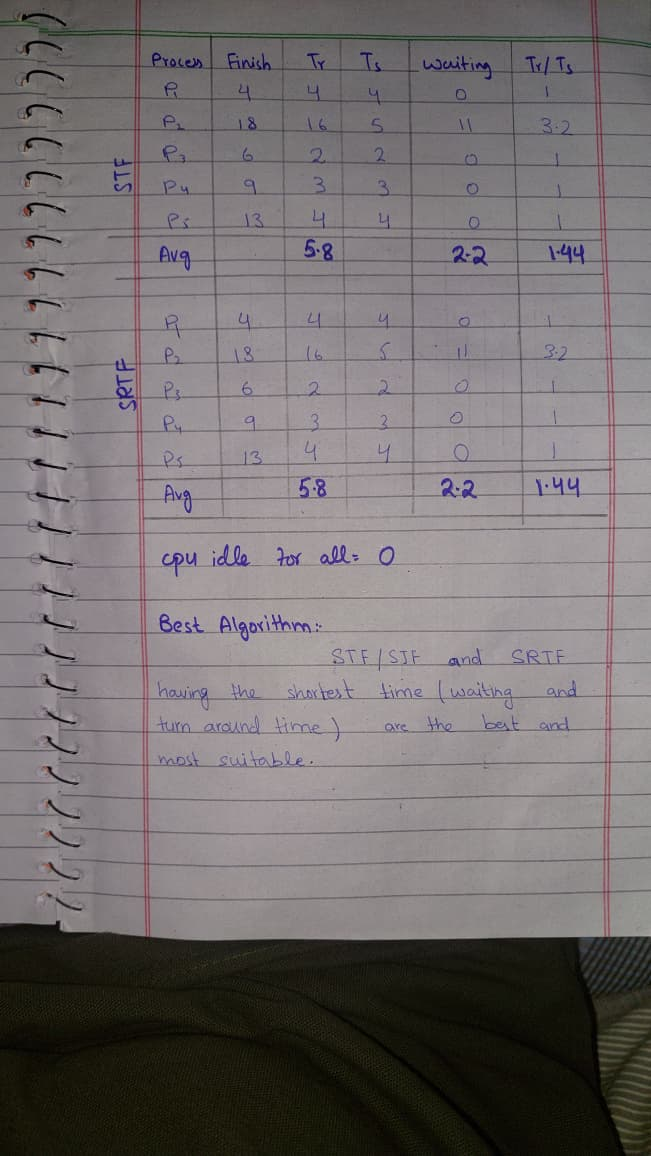 Process Finish Tr Ts waiting Tr/Ts
P1 4 4 4 0 1
P2 18 16 5 11 3.2
P3 6 2 2 0 1
P4 9 3 3 0 1
P5 13 4 4 0 1
Avg 5.8 2.2 1.44
STF
P1 4 4 4 0 1
P2 18 16 5 11 3.2
P3 6 2 2 0 1
P4 9 3 3 0 1
P5 13 4 4 0 1
Avg 5.8 2.2 1.44
SRTF
cpu idle for all = 0
Best Algorithm:-
STF/SJF and SRTF
having the shortest time (waiting and
turn around time) are the best and
most suitable.